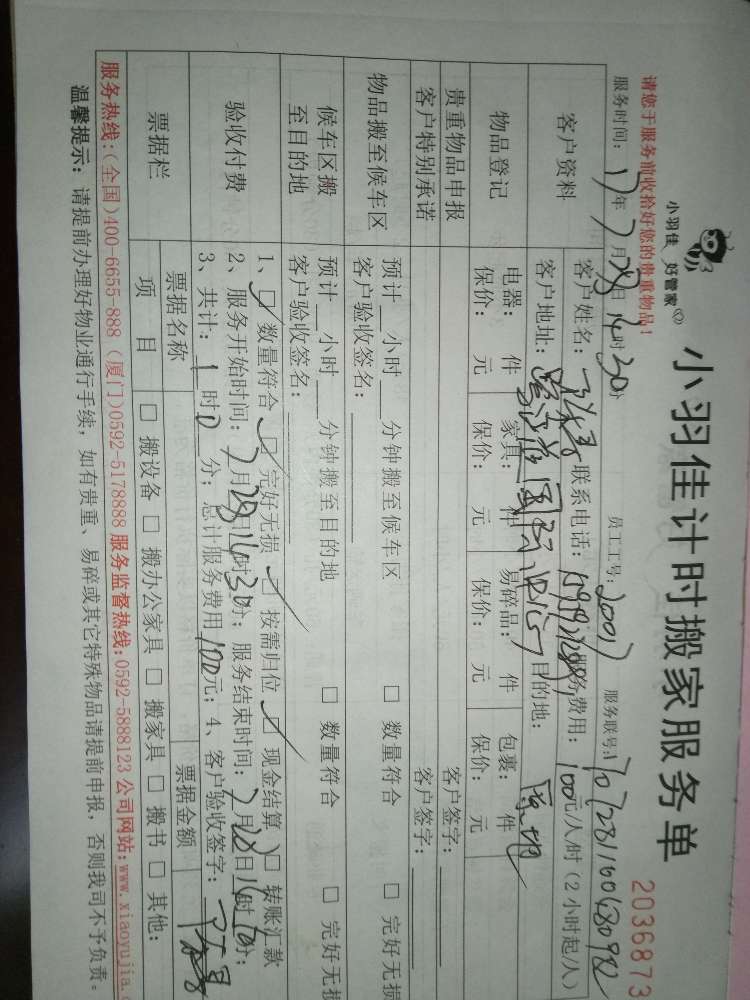 小羽佳计时搬家服务单
2036873
小羽佳 好管家
请您于服务前收拾好您的贵重物品!
服务时间: 17年7月28日14时30分 员工工号: 服务联号:
客户资料
客户姓名: 联系电话: 服务费用: 100元/人/时(2小时起/人)
客户地址: 目的地: 原地
物品登记
电器: 件 家具: 件 易碎品: 件 包裹: 件
保价: 元 保价: 元 保价: 元 保价: 元
贵重物品申报 客户签字:
客户特别承诺 客户签字:
物品搬至候车区
预计 小时 分钟搬至候车区 □ 数量符合 □ 完好无损
客户验收签名:
候车区搬至目的地
预计 小时 分钟搬至目的地 □ 数量符合 □ 完好无损
客户验收签名:
验收付费
1、□ 数量符合 □ 完好无损 □ 按需归位 □ 现金结算 □ 转账汇款
2、服务开始时间: 7月28日14时30分; 服务结束时间: 7月28日 时 分;
3、共计: 1时0分; 总计服务费用100元; 4、客户验收签字:
票据栏
票据名称 票据金额
项 目 □ 搬设备 □ 搬办公家具 □ 搬家具 □ 搬书 □ 其他:
服务热线:(全国)400-6655-888 (厦门)0592-5178888 服务监督热线:0592-5888123 公司网站:www.xiaoyujia.c
温馨提示: 请提前办理好物业通行手续, 如有贵重、易碎或其它特殊物品请提前申报, 否则我司不予负责。